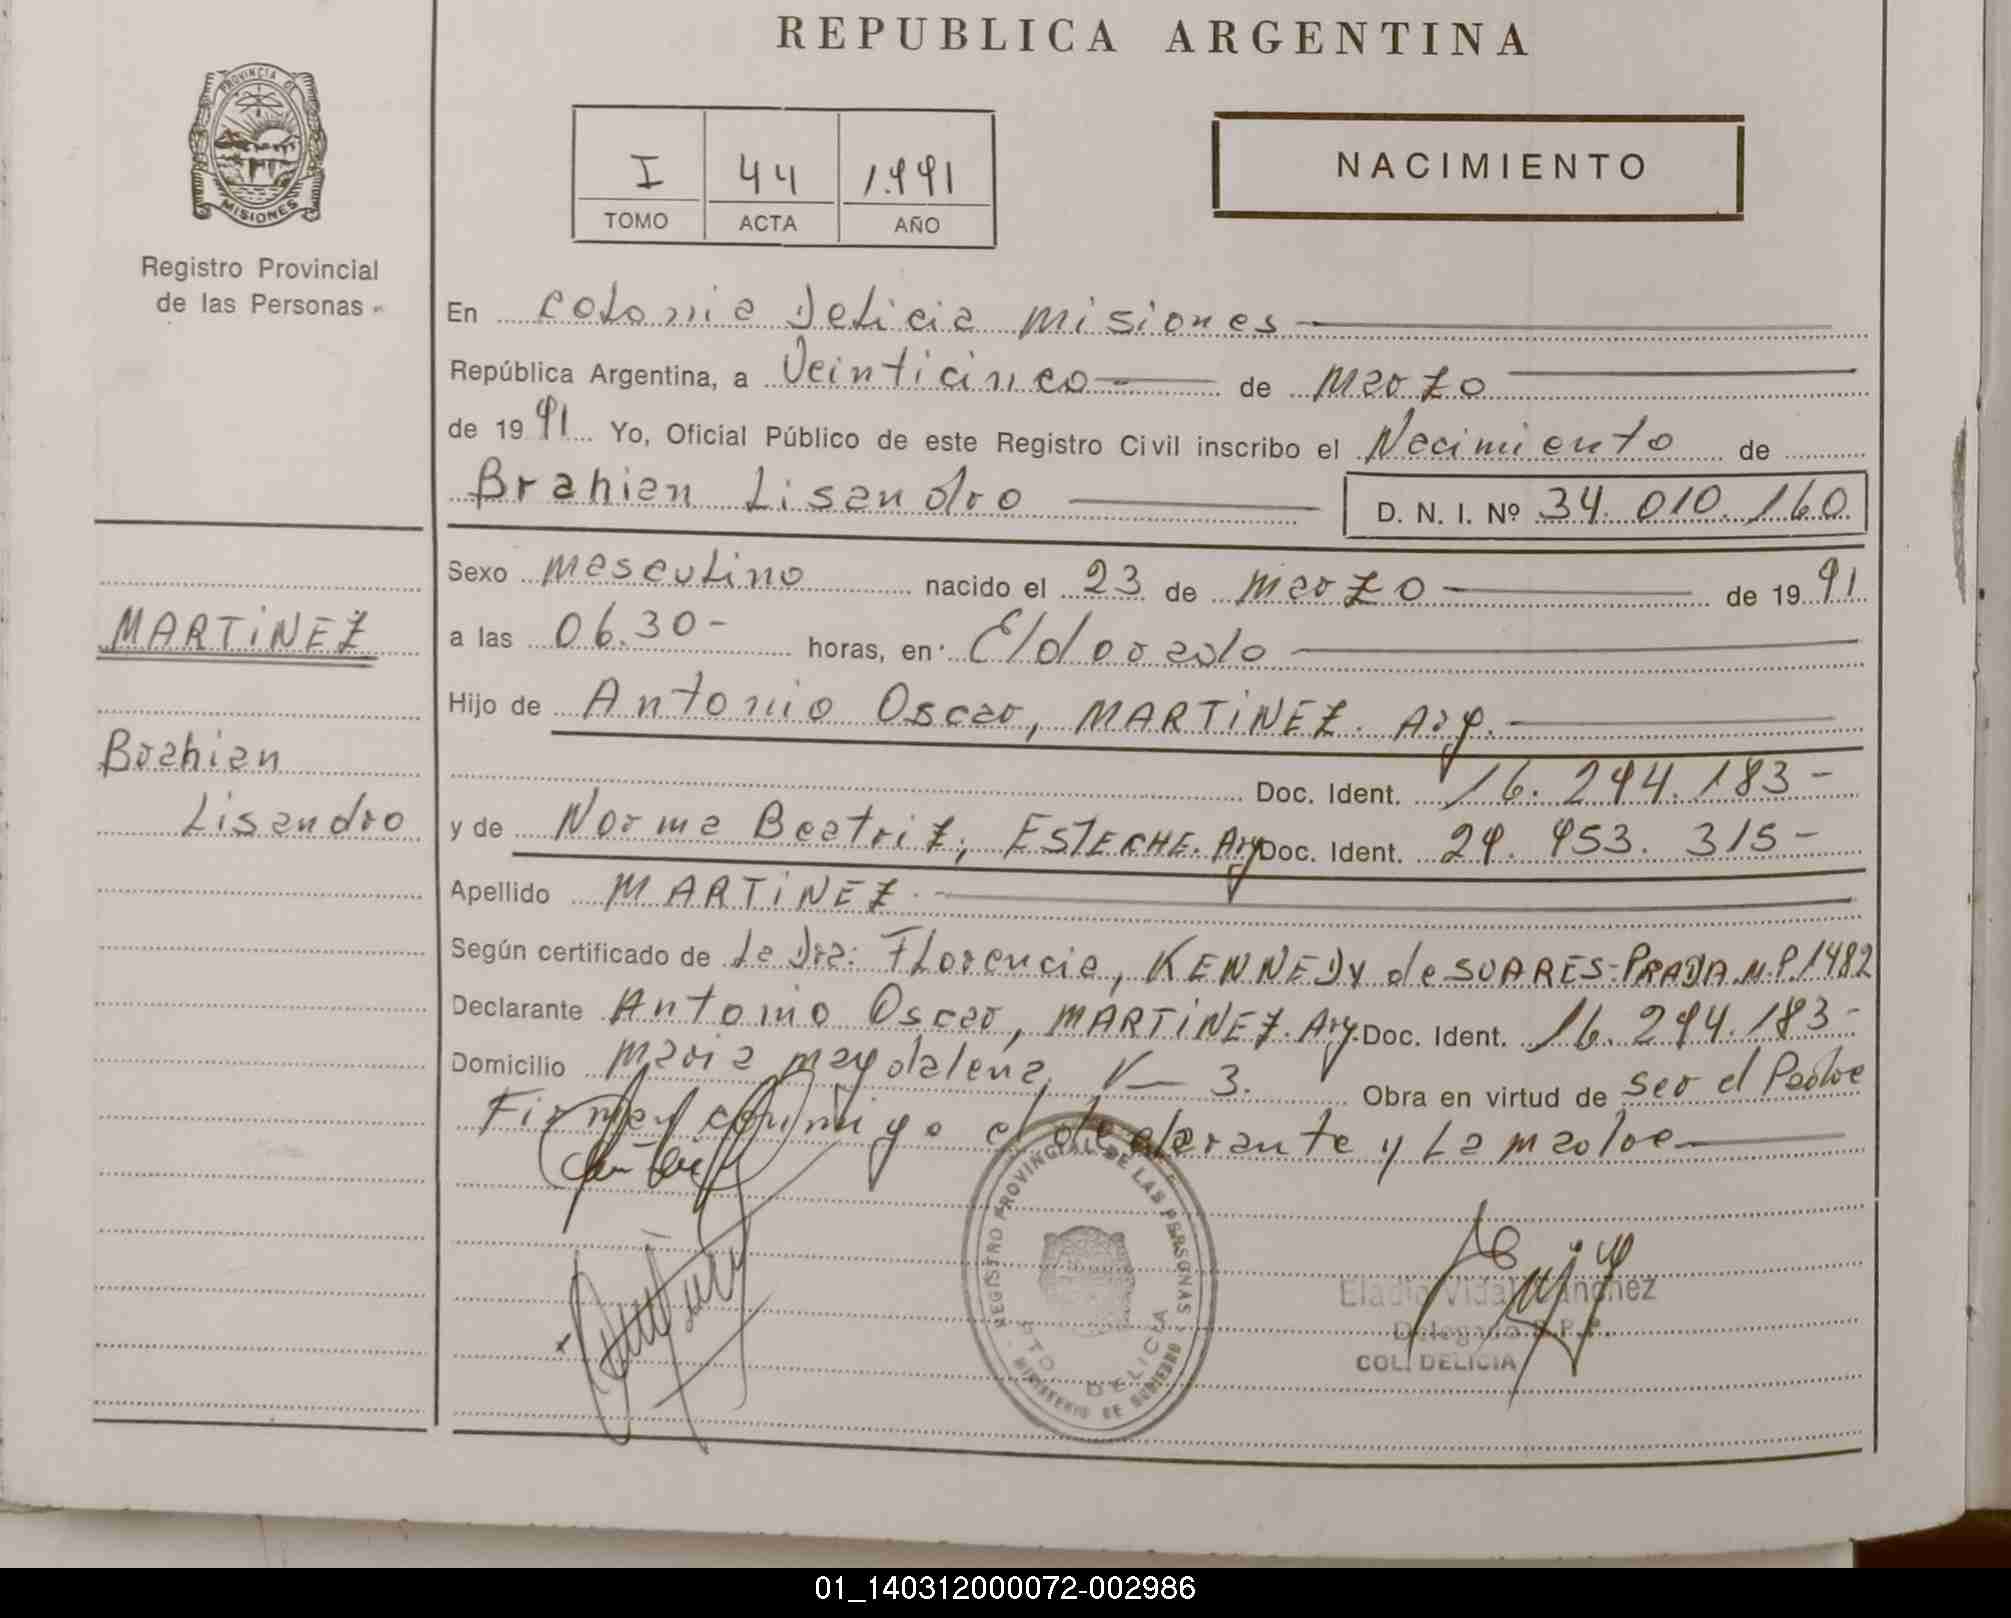 REPUBLICA ARGENTINA
PROVINCIA DE
MISIONES
Registro Provincial
de las Personas
I 44 1.991
TOMO ACTA AÑO
NACIMIENTO
En Colonia Delicia Misiones
República Argentina, a Veinticinco de Marzo
de 1991 Yo, Oficial Público de este Registro Civil inscribo el Nacimiento de
Brahian Lisandro D. N. I. Nº 34.010.160
Sexo Masculino nacido el 23 de Marzo de 1991
a las 06.30- horas, en Eldorado
Hijo de Antonio Oscar, MARTINEZ. Arg.
Doc. Ident. 16.294.183-
y de Norma Beatriz, ESTECHE. Arg Doc. Ident. 29.953.315-
Apellido MARTINEZ.
Según certificado de La Dra: Florencia, KENNEDY de SUARES-PRADA M.P.1482
Declarante Antonio Oscar, MARTINEZ. Arg. Doc. Ident. 16.294.183-
Domicilio Maria Magdalena, 3. Obra en virtud de ser el Padre
Firman conmigo el declarante y La Madre
MARTINEZ
Brahian
Lisandro
REGISTRO PROVINCIAL DE LAS PERSONAS
PTO DELICIA
MINISTERIO DE GOBIERNO
Eladio Vidal Sanchez
Delegado R.P.P.
COL. DELICIA
01_140312000072-002986